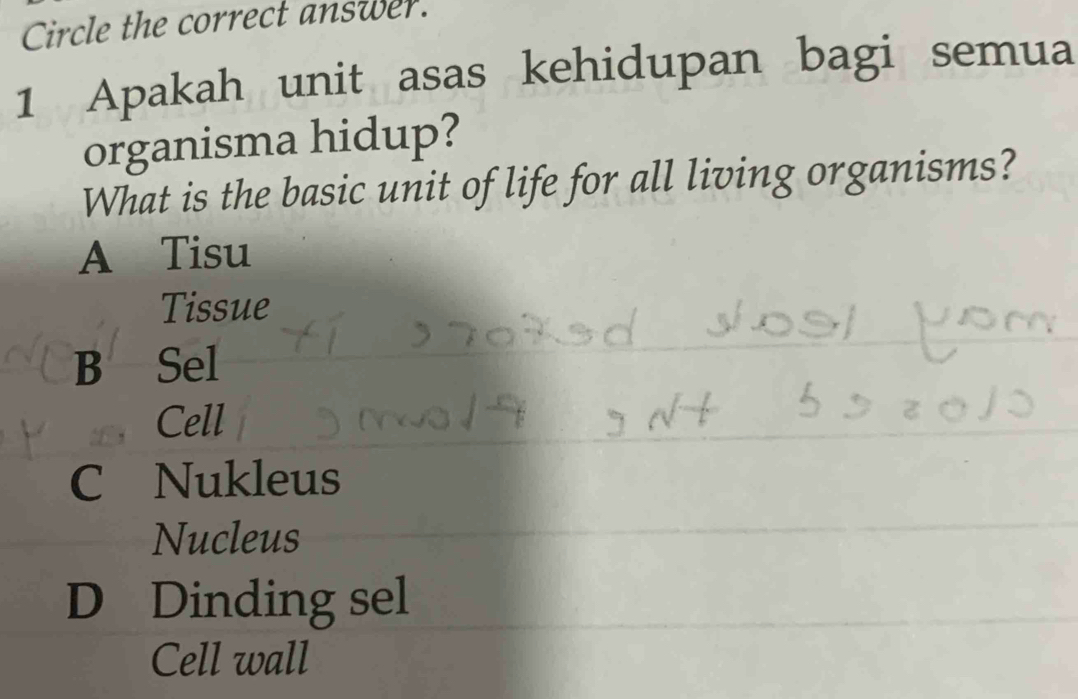 Circle the correct answer.
1 Apakah unit asas kehidupan bagi semua
organisma hidup?
What is the basic unit of life for all living organisms?
A Tisu
Tissue
B Sel
Cell
C Nukleus
Nucleus
D Dinding sel
Cell wall